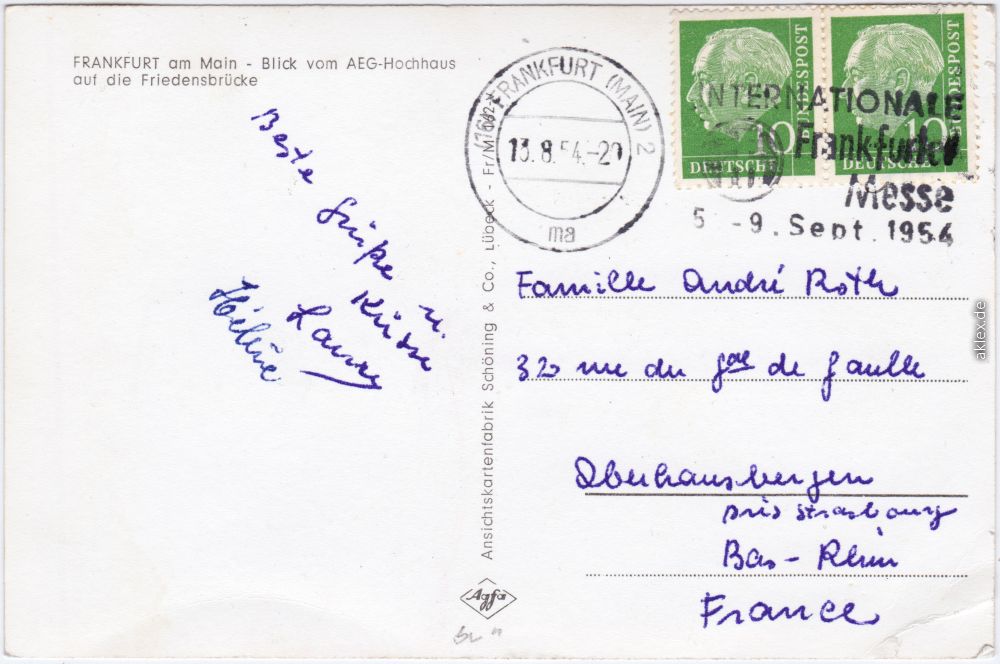 FRANKFURT am Main - Blick vom AEG-Hochhaus
auf die Friedensbrücke
Beste Grüße u.
Küsse
Hélène
Ansichtskartenfabrik Schöning & Co., Lübeck - Fr/M
FRANKFURT (MAIN) 2
13.8.54.-20
ma
DEUTSCHE BUNDESPOST
10
DEUTSCHE BUNDESPOST
10
INTERNATIONALE
Frankfurter
Messe
5 -9. Sept. 1954
Famille André Roth
32 rue du Gal de Gaulle
Oberhausbergen
près Strasbourg
Bas-Rhin
France
Agfa
aklex.de